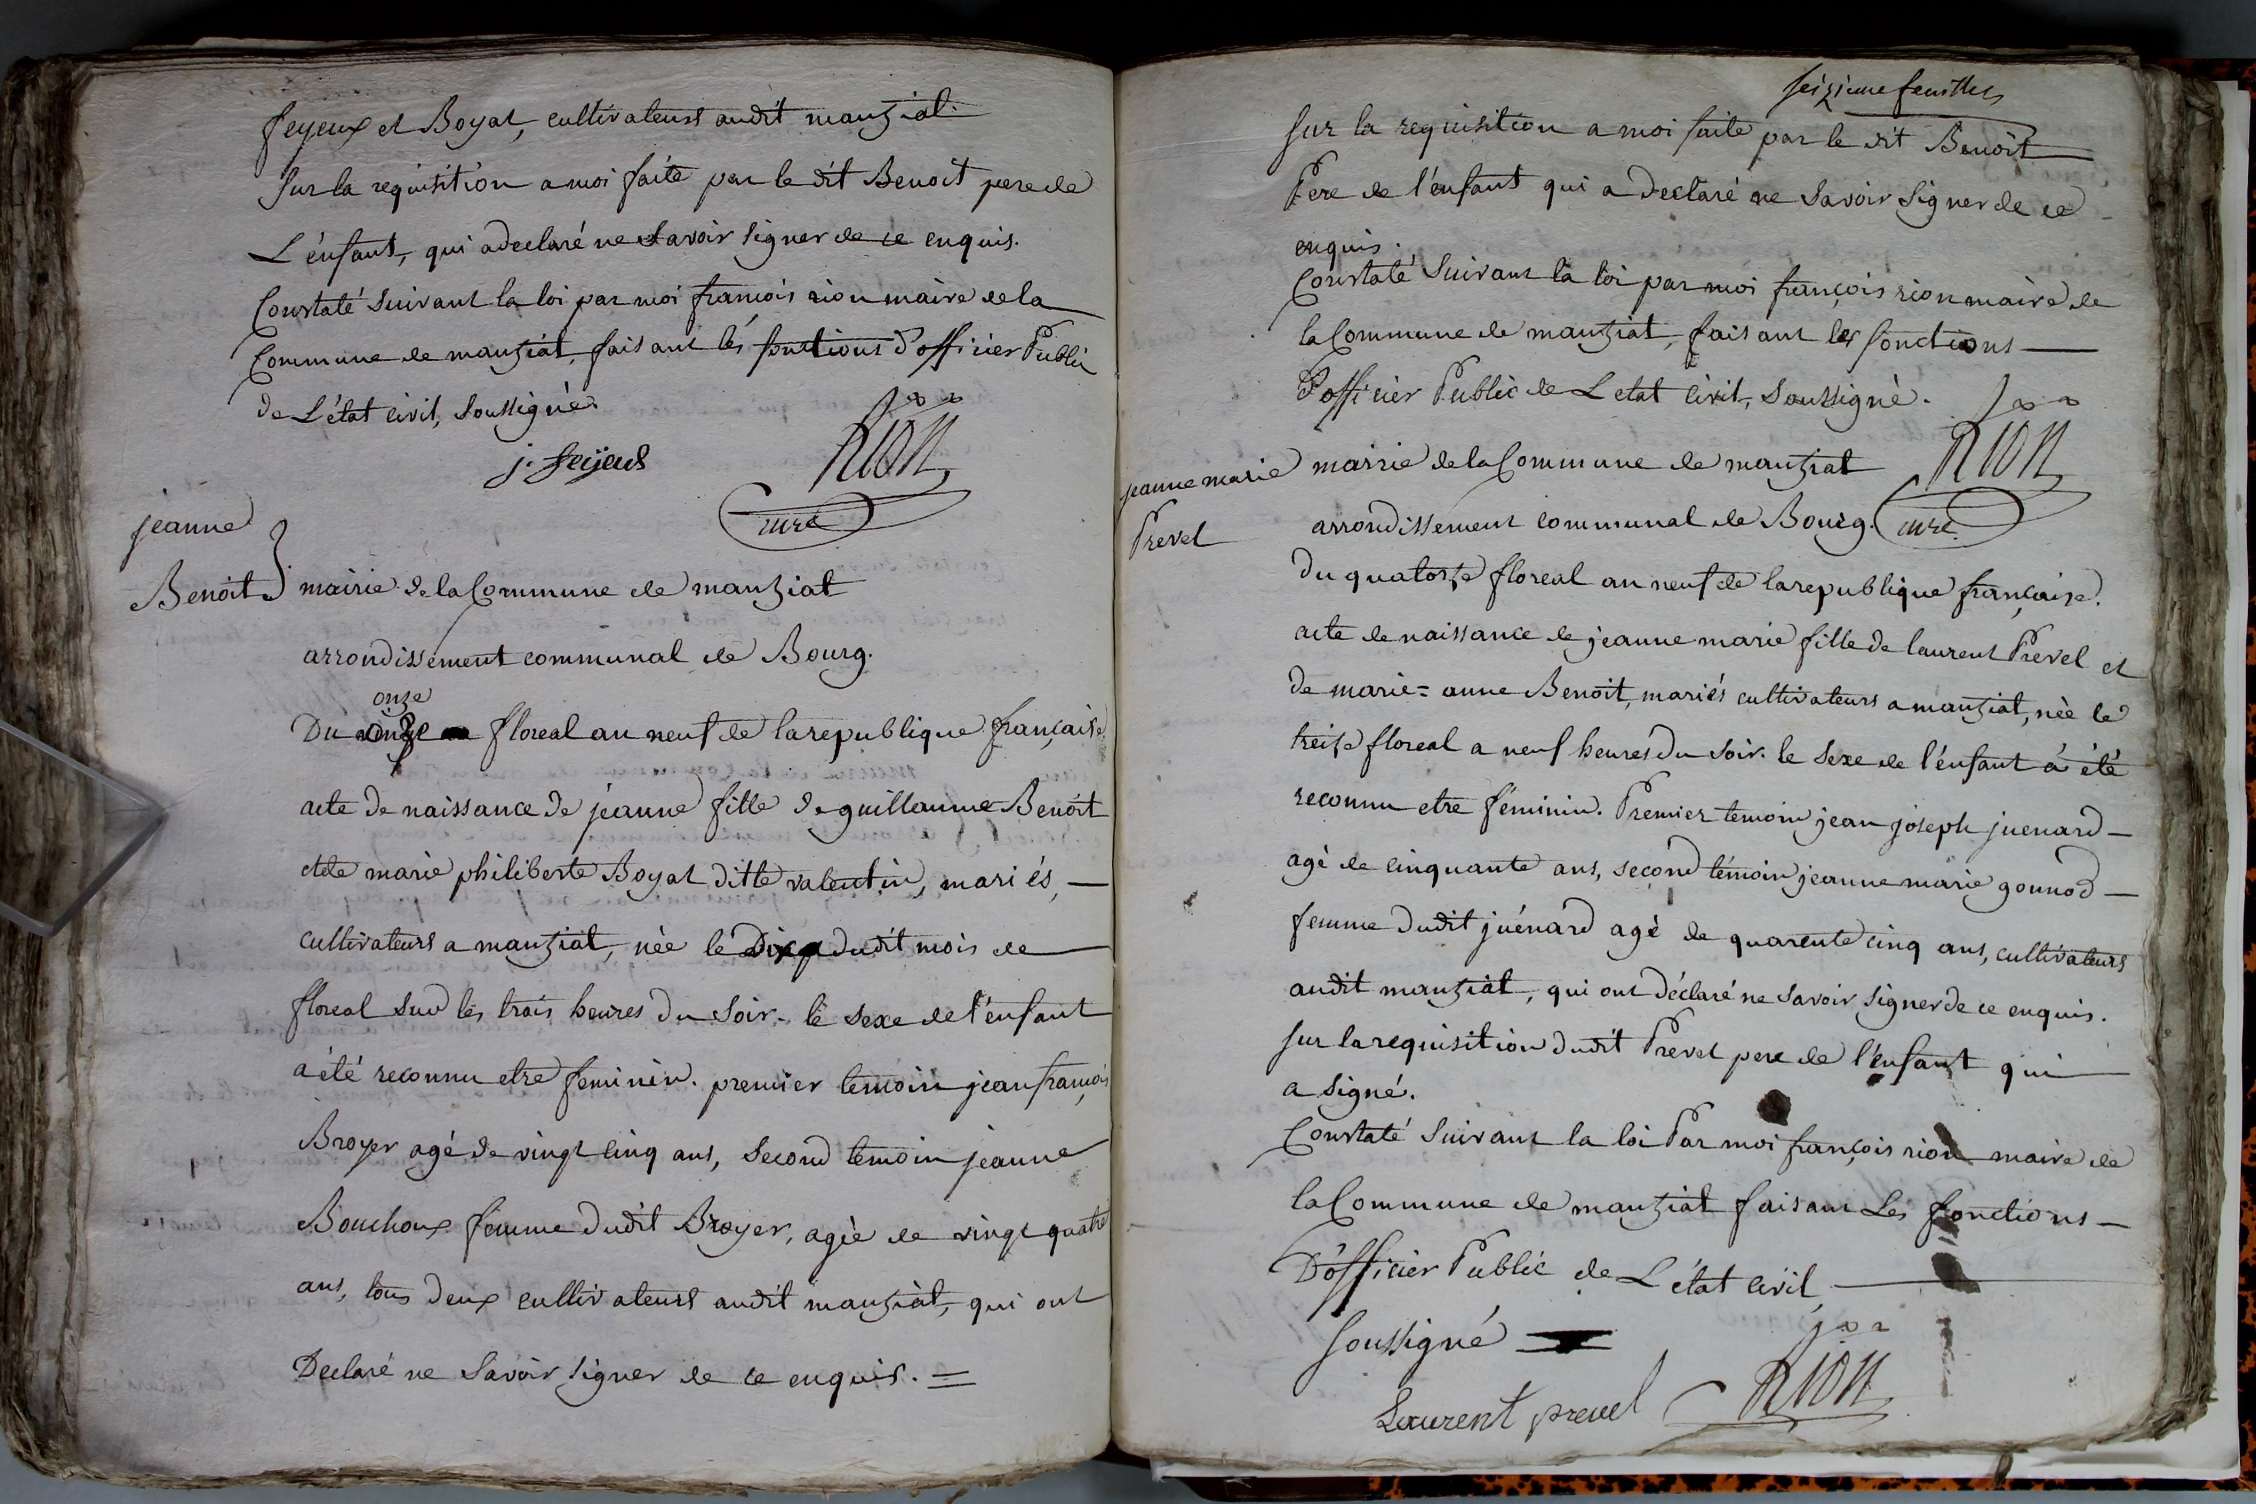 feyeux et Boyat, cultivateurs audit manziat.
sur la requisition a moi faite par le dit Benoit pere de
L'énfant, qui a declaré ne savoir signer de ce enquis.
Constaté suivant la loi par moi françois rion maire de la
Commune de manziat, faisant lés fonctions d'officier Public
de L'état civil, soussigné.
j. feÿeus
Rion
mre
jeanne
Benoit
mairie de la Commune de manziat
arrondissement communal de Bourg.
onze
Du onze floreal an neuf de la republique française
acte de naissance de jeanne fille de guillaume Benoit
et de marie philiberte Boyat ditte valentin, mariés,
cultivateurs a manziat, née le Dix dudit mois de
floreal sur lés trois heures du soir. le sexe de l'énfant
a été reconnu etre feminin. premier temoin jean françois
Broyer agé de vingt cinq ans, second temoin jeanne
Bouchoux femme dudit Broyer, agée de vingt quatre
ans, tous deux cultivateurs audit manziat, qui ont
Declaré ne savoir signer de ce enquis. =
seizieme feuillet
sur la requisition a moi faite par le dit Benoit
Pere de l'énfant qui a declaré ne savoir signer de ce
enquis.
Constaté suivant la loi par moi françois rion maire de
la Commune de manziat, faisant les fonctions
D'officier Public de L'etat civil, soussigné.
Rion
mre
jeanne marie
Prevel
mairie de la Commune de manziat
arrondissement communal de Bourg.
du quatorze floreal an neuf de la republique française.
acte de naissance de jeanne marie fille de laurent Prevel et
de marie=anne Benoit, mariés cultivateurs a manziat, née le
treize floreal a neuf heures du soir. le sexe de l'énfant a été
reconnu etre féminin. Premier temoin jean joseph juenard
agé de cinquante ans, second témoin jeanne marie gounod
femme dudit juénard agé de quarente cinq ans, cultivateurs
audit manziat, qui ont déclaré ne savoir signer de ce enquis.
sur la requisition dudit Prevel pere de l'énfant qui
a signé.
Constaté suivant la loi Par moi françois rion maire de
la Commune de manziat faisant Les fonctions
D'officier Public de L'état civil
soussigné
Laurent prevel
Rion